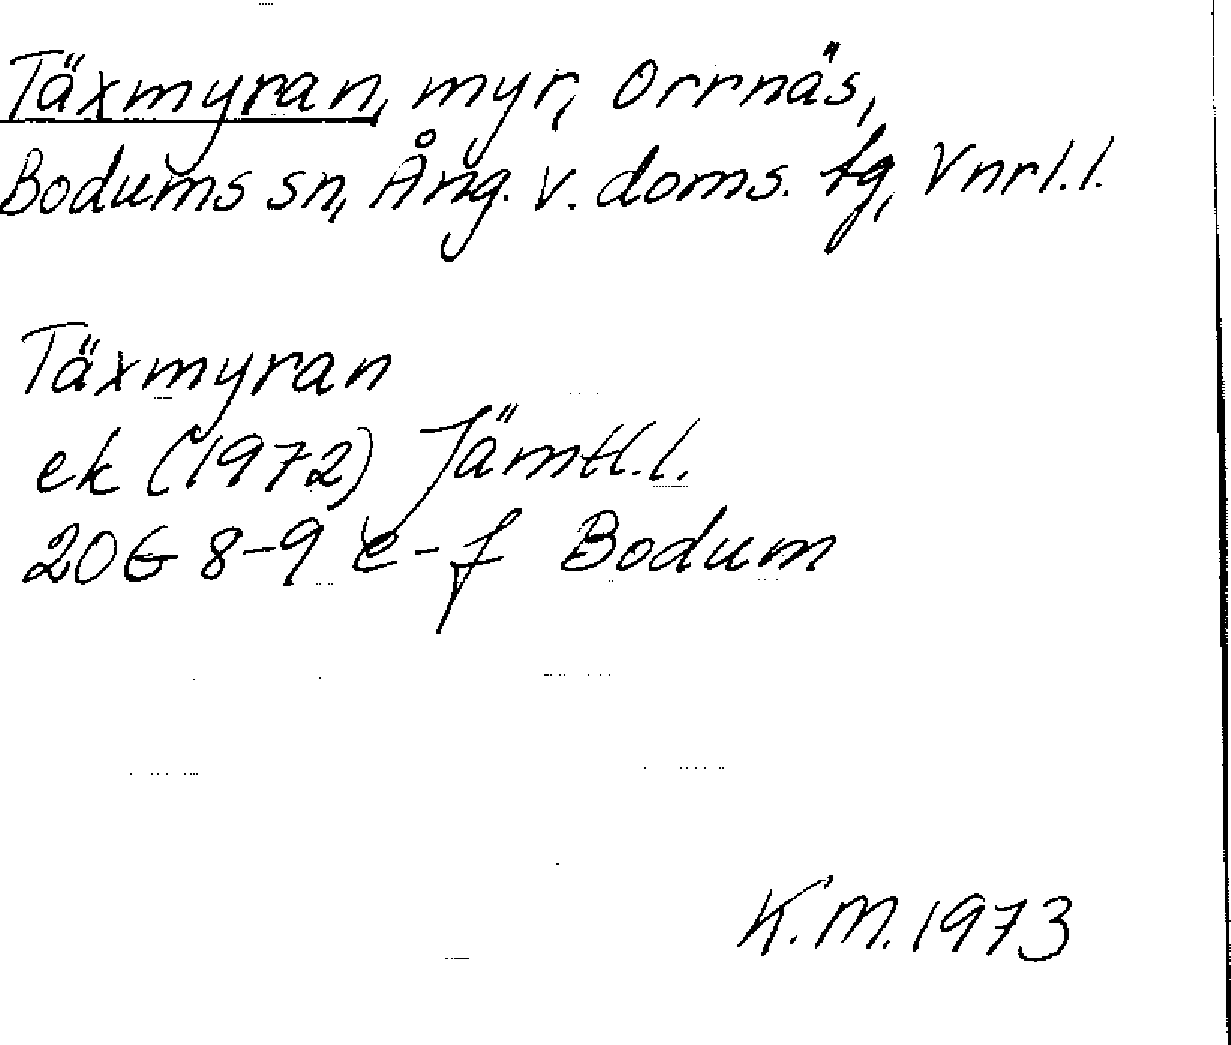 Täxmyran, myr, Orrnäs,
Bodums sn, Ång. v. doms. tg, Vnrl.l.
Täxmyran
ek (1972) Jämtl.l.
20G 8-9 e-f Bodum
K.M. 1973